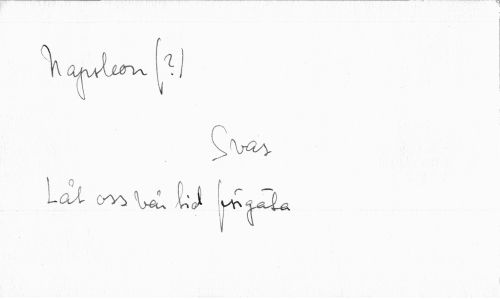 Napoleon (?)
Svar
Låt oss vår tid förgäta